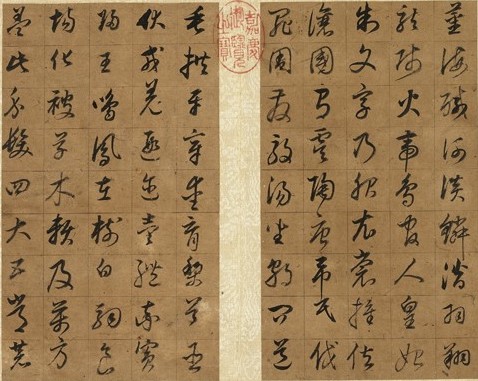 薑海鹹河淡鱗潛羽翔
龍師火帝鳥官人皇始
制文字乃服衣裳推位
讓國有虞陶唐弔民伐
罪周發殷湯坐朝問道
嘉慶御覽之寶
垂拱平章愛育黎首臣
伏戎羌遐邇壹體率賓
歸王鳴鳳在樹白駒食
場化被草木賴及萬方
蓋此身髮四大五常恭